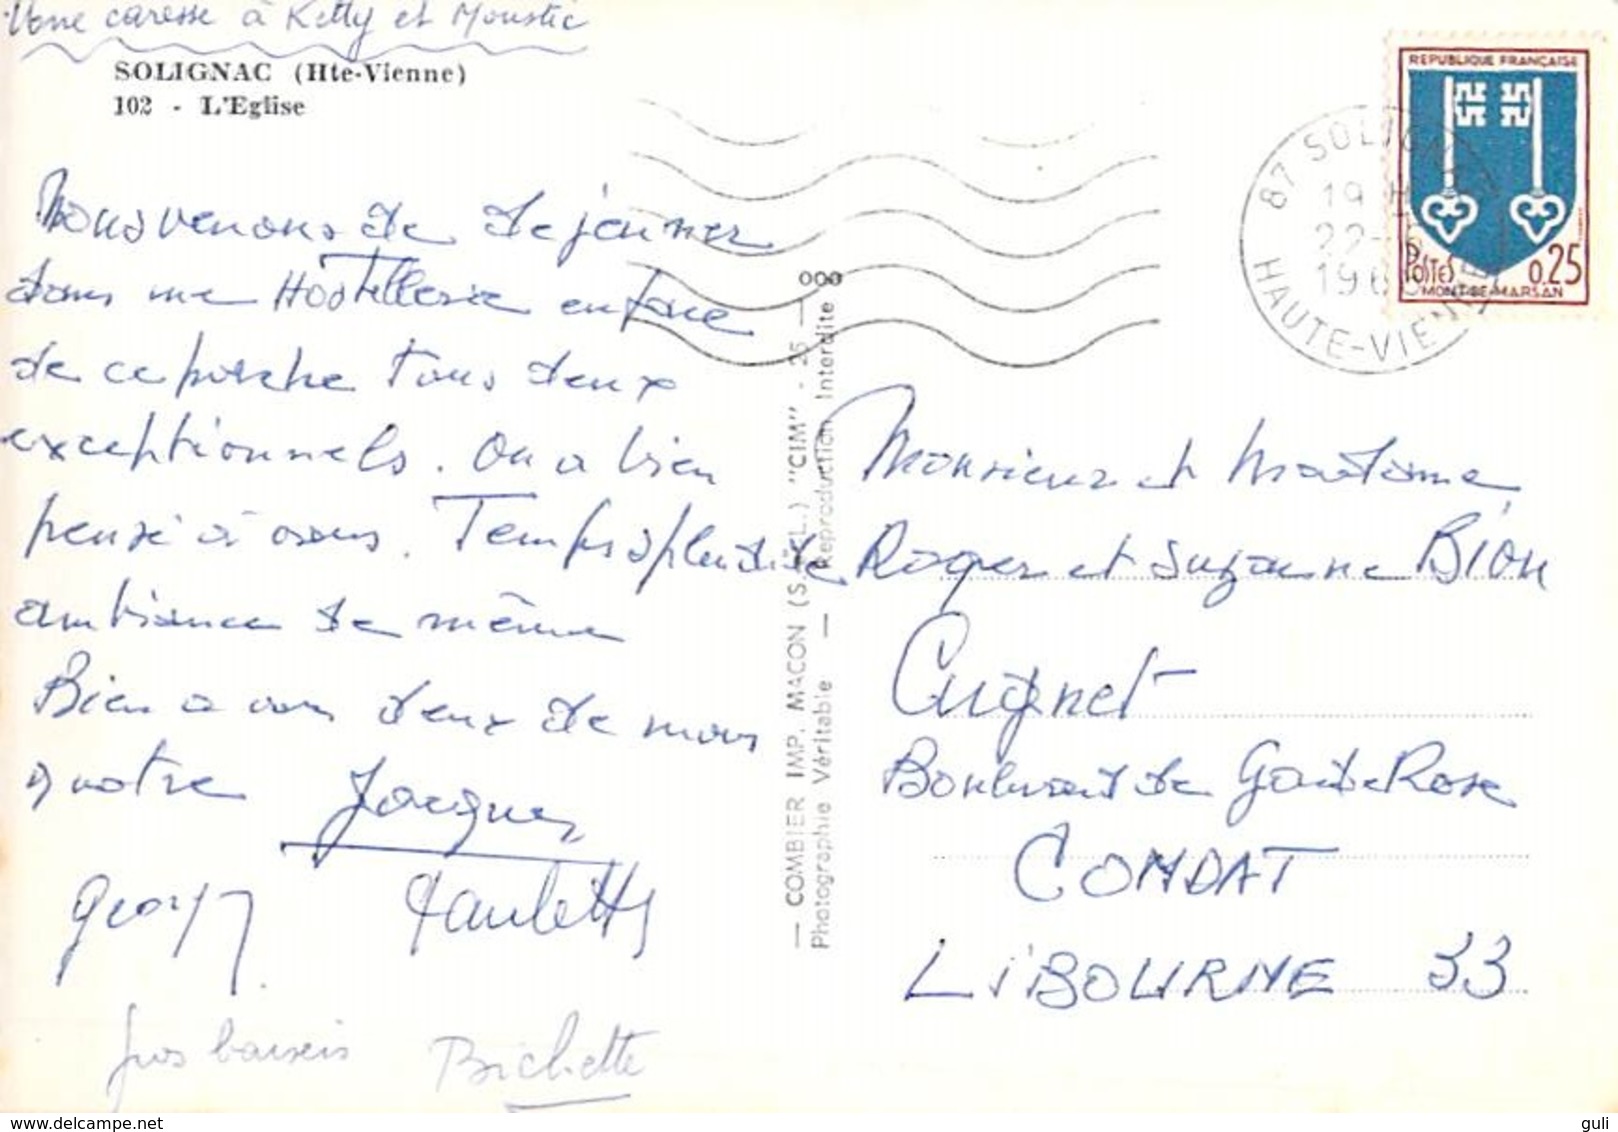 Une caresse à Ketty et Moustic
SOLIGNAC (Hte-Vienne)
102 - L'Eglise
Nous venons de déjeuner
dans une Hostellerie en face
de ce porche tous deux
exceptionnels. On a bien
pensé à vous. Temps splendide
ambiance de même
Bien à vous deux de nous
quatre Jacques
Georges Paulette
Gros baisers Bichette
— COMBIER IMP. MACON (S.-&-L.) "CIM" - 25 —
Photographie Véritable — Reproduction Interdite
000
REPUBLIQUE FRANÇAISE
POSTES 0,25
MONT-DE-MARSAN
87 SOLIGNAC
19 H
22
HAUTE-VIENNE
Monsieur et Madame
Roger et Suzanne Bion
Cugnet
Boulevard de Garde Rose
CONDAT
LIBOURNE 33
guli